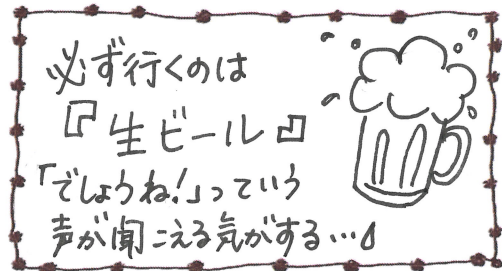 必ず行くのは
『生ビール』
「でしょうね!」っていう
声が聞こえる気がする…